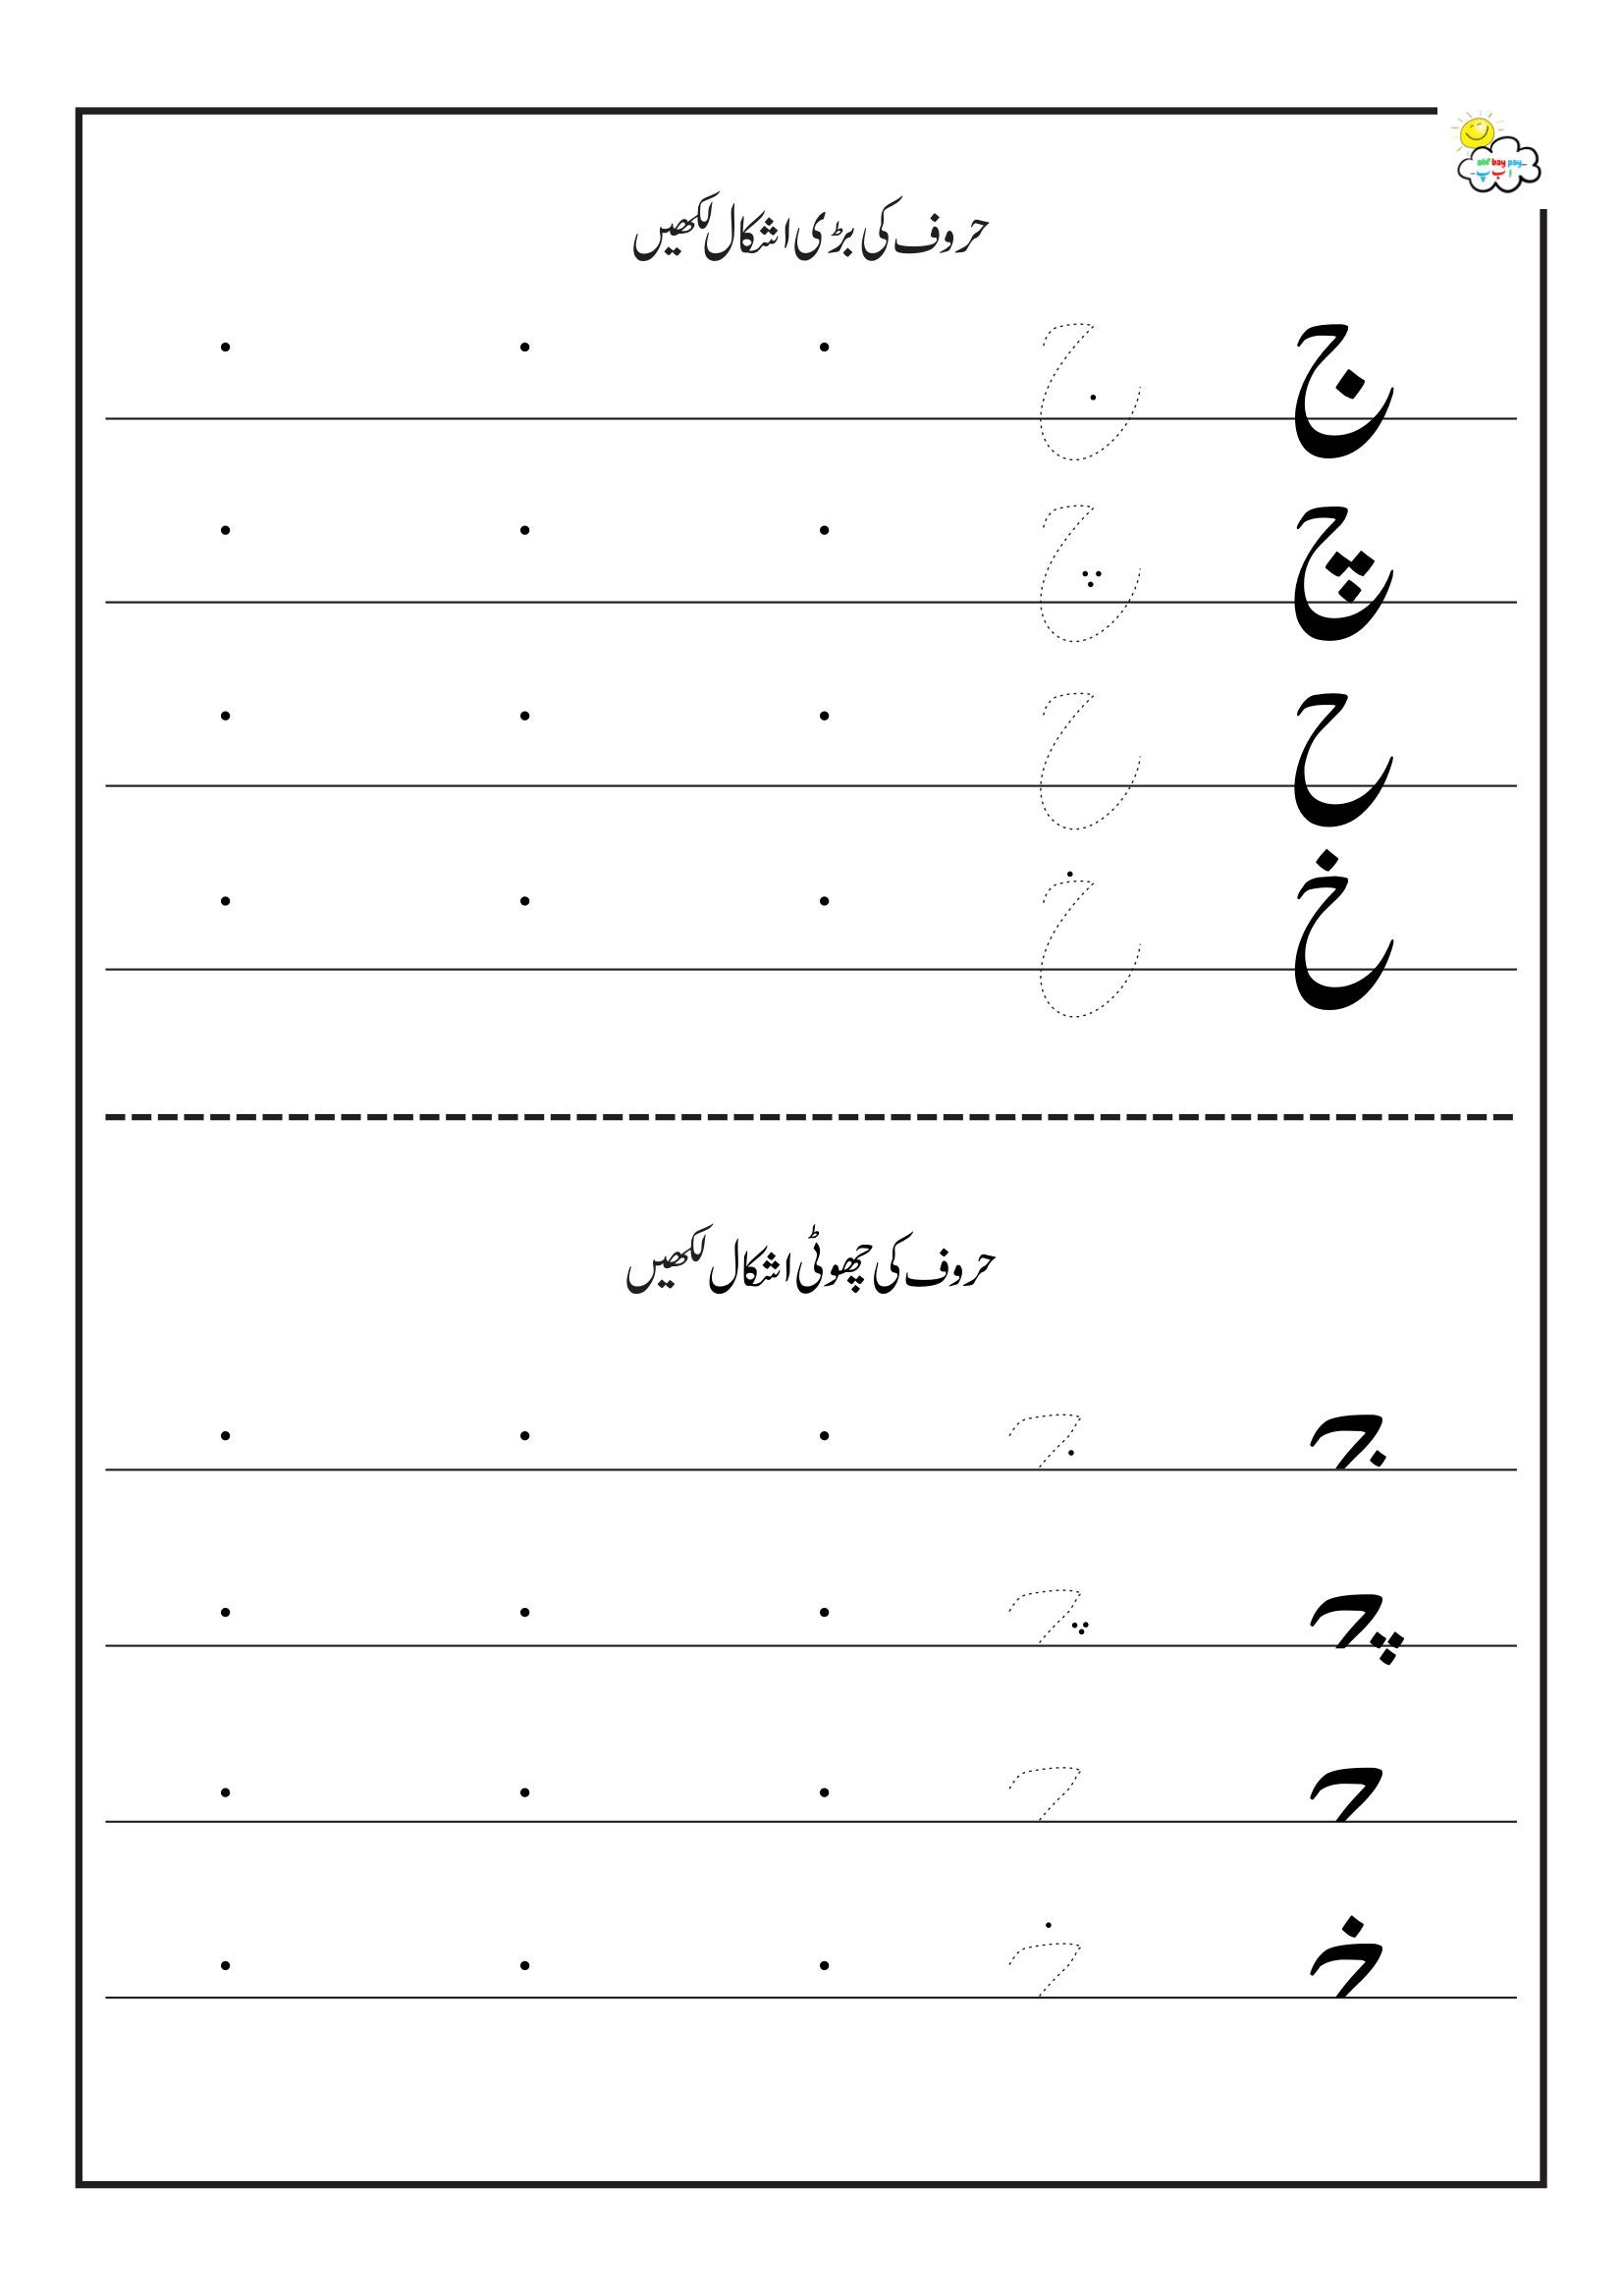 alif bay pay
ا ب پ
حروف کی بڑی اشکال لکھیں
ج
چ
ح
خ
حروف کی چھوٹی اشکال لکھیں
جـ
چـ
حـ
خـ